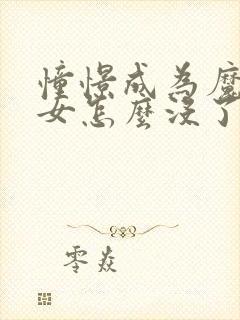 憧憬成为魔
女怎麼没了
零焱